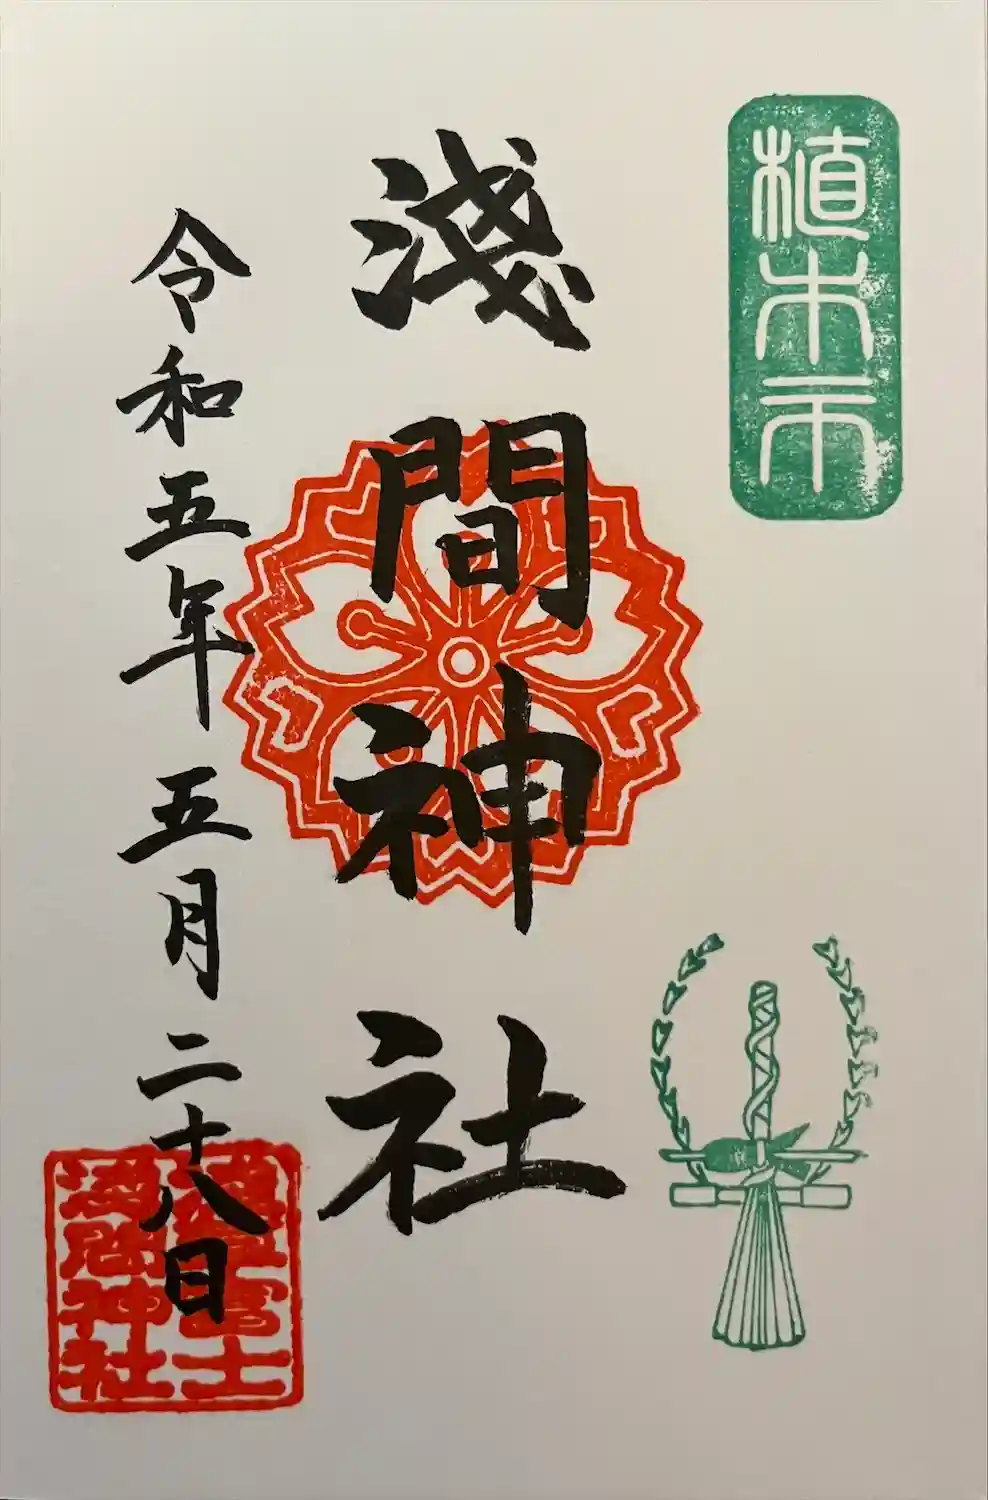 植木市
淺間神社
令和五年五月二十八日
淺草富士
淺間神社